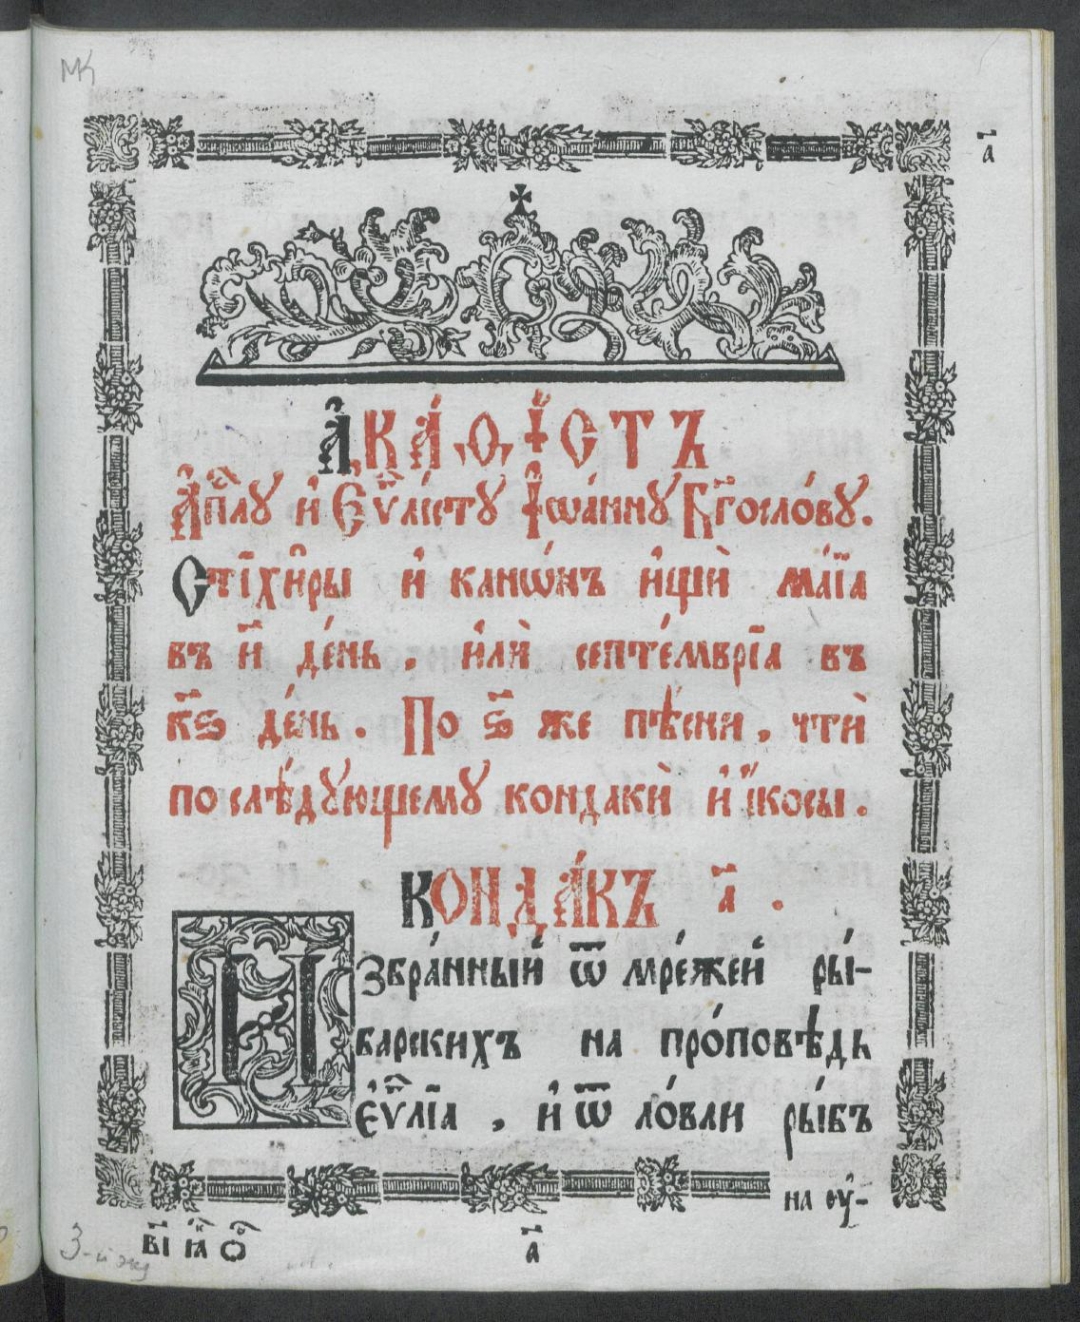 МК
а҃
А҆КА́ѲІСТЪ
А҆пⷭ҇лꙋ и҆ Є҆ѵⷢ҇лі́стꙋ І҆ѡа́ннꙋ Бг҃осло́вꙋ.
Стїхи̑ры и҆ канѡ́нъ и҆щѝ ма́їа
въ и҃ де́нь, и҆лѝ септе́мврїа въ
к҃ѕ де́нь. По ѕ҃ же пѣ́сни, чтѝ
послѣ́дꙋющемꙋ кондакѝ и҆ і҆́косы.
КОНДА́КЪ а҃.
И҆збра́нный ѿ мре́жей ры́-
барскихъ на про́повѣдь
є҆ѵⷢ҇лїа, и҆ ѿ ло́вли ры́бъ
на оу҆́-
а҃
3-й экз